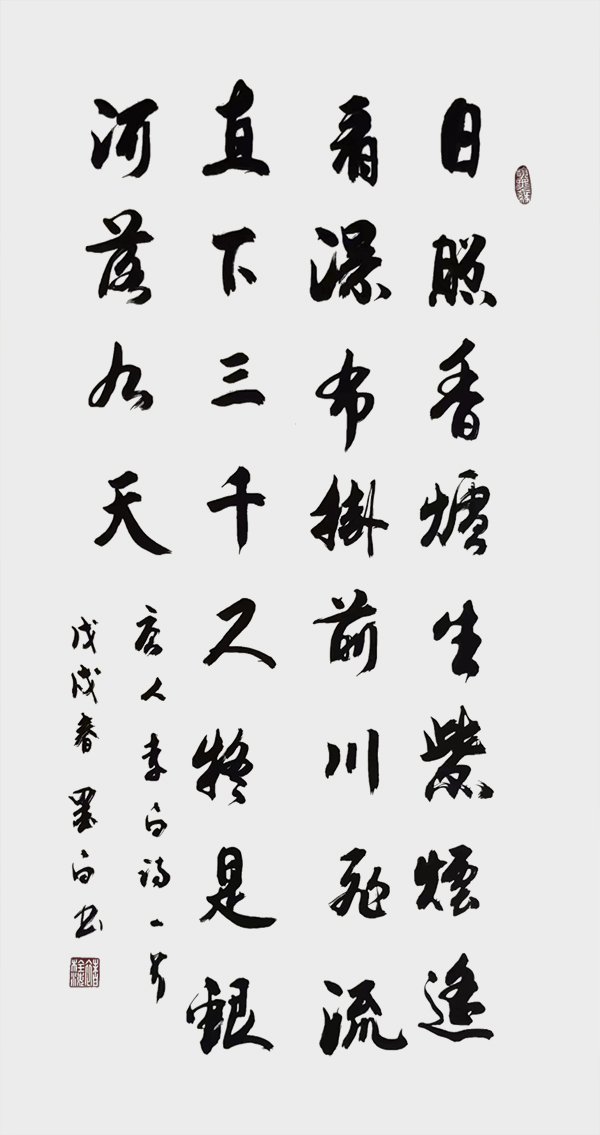 日照香爐生紫煙遙
看瀑布掛前川飛流
直下三千尺疑是銀
河落九天
唐人李白詩一首
戊戌春墨白书